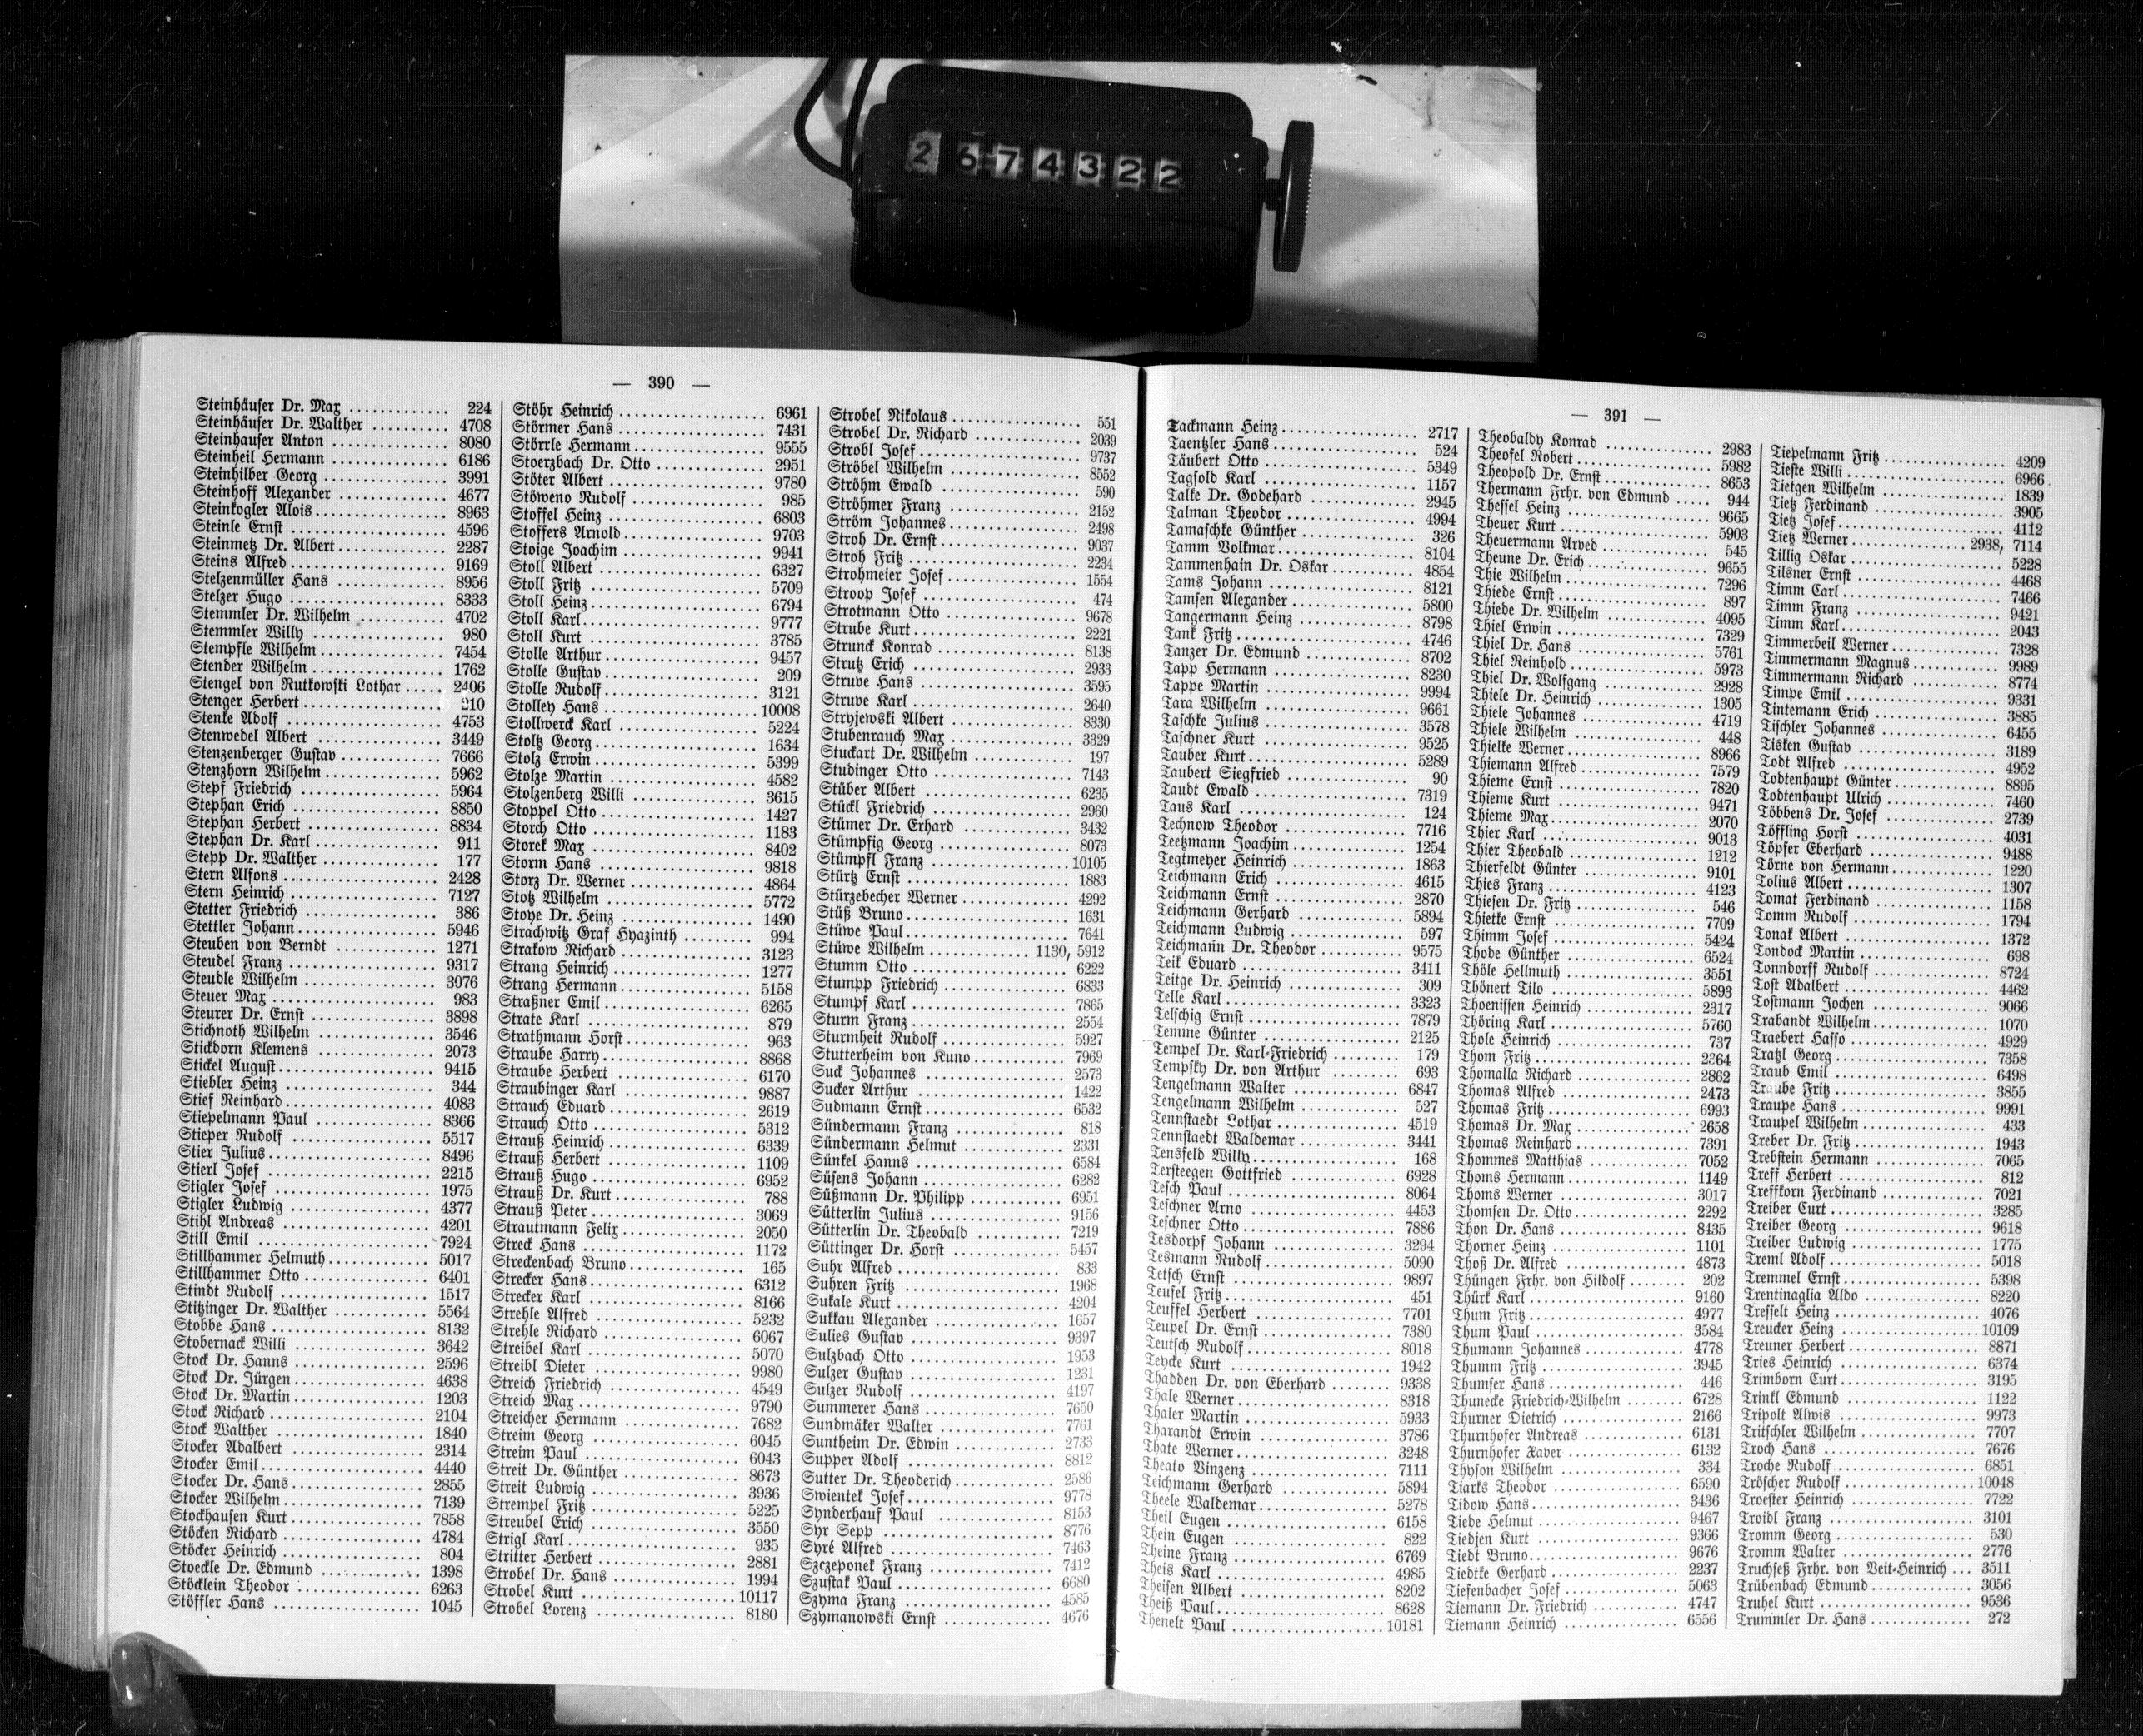 2 6 7 4 3 2 2
— 390 —
Steinhäuser Dr. Max 224
Steinhäuser Dr. Walther 4708
Steinhauser Anton 8080
Steinheil Hermann 6186
Steinhilber Georg 3991
Steinhoff Alexander 4677
Steinkogler Alois 8963
Steinle Ernst 4596
Steinmetz Dr. Albert 2287
Steins Alfred 9169
Stelzenmüller Hans 8956
Stelzer Hugo 8333
Stemmler Dr. Wilhelm 4702
Stemmler Willy 980
Stempfle Wilhelm 7454
Stender Wilhelm 1762
Stengel von Rutkowski Lothar 2406
Stenger Herbert 210
Stenke Adolf 4753
Stenwedel Albert 3449
Stenzenberger Gustav 7666
Stenzhorn Wilhelm 5962
Stepf Friedrich 5964
Stephan Erich 8850
Stephan Herbert 8834
Stephan Dr. Karl 911
Stepp Dr. Walther 177
Stern Alfons 2428
Stern Heinrich 7127
Stetter Friedrich 386
Stettler Johann 5946
Steuben von Berndt 1271
Steudel Franz 9317
Steudle Wilhelm 3076
Steuer Max 983
Steurer Dr. Ernst 3898
Stichnoth Wilhelm 3546
Stickdorn Klemens 2073
Stickel August 9415
Stiebler Heinz 344
Stief Reinhard 4083
Stiepelmann Paul 8366
Stieper Rudolf 5517
Stier Julius 8496
Stierl Josef 2215
Stigler Josef 1975
Stigler Ludwig 4377
Stihl Andreas 4201
Still Emil 7924
Stillhammer Helmuth 5017
Stillhammer Otto 6401
Stindt Rudolf 1517
Stitzinger Dr. Walther 5564
Stobbe Hans 8132
Stobernack Willi 3642
Stock Dr. Hanns 2596
Stock Dr. Jürgen 4638
Stock Dr. Martin 1203
Stock Richard 2104
Stock Walther 1840
Stocker Adalbert 2314
Stocker Emil 4440
Stocker Dr. Hans 2855
Stocker Wilhelm 7139
Stockhausen Kurt 7858
Stöcken Richard 4784
Stöcker Heinrich 804
Stoeckle Dr. Edmund 1398
Stöcklein Theodor 6263
Stöffler Hans 1045
Stöhr Heinrich 6961
Störmer Hans 7431
Störrle Hermann 9555
Stoerzbach Dr. Otto 2951
Stöter Albert 9780
Stöweno Rudolf 985
Stoffel Heinz 6803
Stoffers Arnold 9703
Stoige Joachim 9941
Stoll Albert 6327
Stoll Fritz 5709
Stoll Heinz 6794
Stoll Karl 9777
Stoll Kurt 3785
Stolle Arthur 9457
Stolle Gustav 209
Stolle Rudolf 3121
Stolley Hans 10008
Stollwerck Karl 5224
Stoltz Georg 1634
Stolz Erwin 5399
Stolze Martin 4582
Stolzenberg Willi 3615
Stoppel Otto 1427
Storch Otto 1183
Storek Max 8402
Storm Hans 9818
Storz Dr. Werner 4864
Stotz Wilhelm 5772
Stoye Dr. Heinz 1490
Strachwitz Graf Hyazinth 994
Strakow Richard 3123
Strang Heinrich 1277
Strang Hermann 5158
Straßner Emil 6265
Strate Karl 879
Strathmann Horst 963
Straube Harry 8868
Straube Herbert 6170
Straubinger Karl 9887
Strauch Eduard 2619
Strauch Otto 5312
Strauß Heinrich 6339
Strauß Herbert 1109
Strauß Hugo 6952
Strauß Dr. Kurt 788
Strauß Peter 3069
Strautmann Felix 2050
Streck Hans 1172
Streckenbach Bruno 165
Strecker Hans 6312
Strecker Karl 8166
Strehle Alfred 5232
Strehle Richard 6067
Streibel Karl 5070
Streibl Dieter 9980
Streich Friedrich 4549
Streich Max 9790
Streicher Hermann 7682
Streim Georg 6045
Streim Paul 6043
Streit Dr. Günther 8673
Streit Ludwig 3936
Strempel Fritz 5225
Streubel Erich 3550
Strigl Karl 935
Stritter Herbert 2881
Strobel Dr. Hans 1994
Strobel Kurt 10117
Strobel Lorenz 8180
Strobel Nikolaus 551
Strobel Dr. Richard 2039
Strobl Josef 9737
Ströbel Wilhelm 8552
Ströhm Ewald 590
Ströhmer Franz 2152
Ström Johannes 2498
Stroh Dr. Ernst 9037
Stroh Fritz 2234
Strohmeier Josef 1554
Stroop Josef 474
Strotmann Otto 9678
Strube Kurt 2221
Strunck Konrad 8138
Strutz Erich 2933
Struve Hans 3595
Struve Karl 2640
Stryjewski Albert 8330
Stubenrauch Max 3329
Stuckart Dr. Wilhelm 197
Studinger Otto 7143
Stüber Albert 6235
Stückl Friedrich 2960
Stümer Dr. Erhard 3432
Stümpfig Georg 8073
Stümpfl Franz 10105
Stürtz Ernst 1883
Stürzebecher Werner 4292
Stüß Bruno 1631
Stüwe Paul 7641
Stüwe Wilhelm 1130, 5912
Stumm Otto 6222
Stumpp Friedrich 6833
Stumpf Karl 7865
Sturm Franz 2554
Sturmheit Rudolf 5927
Stutterheim von Kuno 7969
Suck Johannes 2573
Sucker Arthur 1422
Sudmann Ernst 6532
Sündermann Franz 818
Sündermann Helmut 2331
Sünkel Hanns 6584
Süsens Johann 6282
Süßmann Dr. Philipp 6951
Sütterlin Julius 9156
Sütterlin Dr. Theobald 7219
Süttinger Dr. Horst 5457
Suhr Alfred 833
Suhren Fritz 1968
Sukale Kurt 4204
Sukkau Alexander 1657
Sulies Gustav 9397
Sulzbach Otto 1953
Sulzer Gustav 1231
Sulzer Rudolf 4197
Summerer Hans 7650
Sundmäker Walter 7761
Suntheim Dr. Edwin 2733
Supper Adolf 8812
Sutter Dr. Theoderich 2586
Swientek Josef 9778
Synderhauf Paul 8153
Syr Sepp 8776
Syré Alfred 7463
Szczeponek Franz 7412
Szustak Paul 6680
Szyma Franz 4585
Szymanowski Ernst 4676
— 391 —
Tackmann Heinz 2717
Taentzler Hans 524
Täubert Otto 5349
Tagsold Karl 1157
Talke Dr. Godehard 2945
Talman Theodor 4994
Tamaschke Günther 326
Tamm Volkmar 8104
Tammenhain Dr. Oskar 4854
Tams Johann 8121
Tamsen Alexander 5800
Tangermann Heinz 8798
Tank Fritz 4746
Tanzer Dr. Edmund 8702
Tapp Hermann 8230
Tappe Martin 9994
Tara Wilhelm 9661
Taschke Julius 3578
Taschner Kurt 9525
Tauber Kurt 5289
Taubert Siegfried 90
Taudt Ewald 7319
Taus Karl 124
Technow Theodor 7716
Teetzmann Joachim 1254
Tegtmeyer Heinrich 1863
Teichmann Erich 4615
Teichmann Ernst 2870
Teichmann Gerhard 5894
Teichmann Ludwig 597
Teichmann Dr. Theodor 9575
Teik Eduard 3411
Teitge Dr. Heinrich 309
Telle Karl 3323
Telschig Ernst 7879
Temme Günter 2125
Tempel Dr. Karl-Friedrich 179
Tempsky Dr. von Arthur 693
Tengelmann Walter 6847
Tengelmann Wilhelm 527
Tennstaedt Lothar 4519
Tennstaedt Waldemar 3441
Tensfeld Willy 168
Tersteegen Gottfried 6928
Tesch Paul 8064
Teschner Arno 4453
Teschner Otto 7886
Tesdorpf Johann 3294
Tesmann Rudolf 5090
Tetsch Ernst 9897
Teufel Fritz 451
Teuffel Herbert 7701
Teupel Dr. Ernst 7380
Teutsch Rudolf 8018
Teycke Kurt 1942
Thadden Dr. von Eberhard 9338
Thale Werner 8318
Thaler Martin 5933
Tharandt Erwin 3786
Thate Werner 3248
Theato Vinzenz 7111
Teichmann Gerhard 5894
Theele Waldemar 5278
Theil Eugen 6158
Thein Eugen 822
Theine Franz 6769
Theis Karl 4985
Theisen Albert 8202
Theiß Paul 8628
Thenelt Paul 10181
Theobaldy Konrad 2983
Theofel Robert 5982
Theopold Dr. Ernst 8653
Thermann Frhr. von Edmund 944
Thessel Heinz 9665
Theuer Kurt 5903
Theuermann Arved 545
Theune Dr. Erich 9655
Thie Wilhelm 7296
Thiede Ernst 897
Thiede Dr. Wilhelm 4095
Thiel Erwin 7329
Thiel Dr. Hans 5761
Thiel Reinhold 5973
Thiel Dr. Wolfgang 2928
Thiele Dr. Heinrich 1305
Thiele Johannes 4719
Thiele Wilhelm 448
Thielke Werner 8966
Thiemann Alfred 7579
Thieme Ernst 7820
Thieme Kurt 9471
Thieme Max 2070
Thier Karl 9013
Thier Theobald 1212
Thierfeldt Günter 9101
Thies Franz 4123
Thiesen Dr. Fritz 546
Thietke Ernst 7709
Thimm Josef 5424
Thode Günther 6524
Thöle Hellmuth 3551
Thönert Tilo 5893
Thoenissen Heinrich 2317
Thöring Karl 5760
Thole Heinrich 737
Thom Fritz 2264
Thomalla Richard 2862
Thomas Alfred 2473
Thomas Fritz 6993
Thomas Dr. Max 2658
Thomas Reinhard 7391
Thommes Matthias 7052
Thoms Hermann 1149
Thoms Werner 3017
Thomsen Dr. Otto 2292
Thon Dr. Hans 8435
Thorner Heinz 1101
Thoß Dr. Alfred 4873
Thüngen Frhr. von Hildolf 202
Thürk Karl 9160
Thum Fritz 4977
Thum Paul 3584
Thumann Johannes 4778
Thumm Fritz 3945
Thumser Hans 446
Thunecke Friedrich-Wilhelm 6728
Thurner Dietrich 2166
Thurnhofer Andreas 6131
Thurnhofer Xaver 6132
Thyson Wilhelm 334
Tiarks Theodor 6590
Tidow Hans 3436
Tiede Helmut 9467
Tiedjen Kurt 9366
Tiedt Bruno 9676
Tiedtke Gerhard 2237
Tiefenbacher Josef 5063
Tiemann Dr. Friedrich 4747
Tiemann Heinrich 6556
Tiepelmann Fritz 4209
Tieste Willi 6966
Tietgen Wilhelm 1839
Tietz Ferdinand 3905
Tietz Josef 4112
Tietz Werner 2938, 7114
Tillig Oskar 5228
Tilsner Ernst 4468
Timm Carl 7466
Timm Franz 9421
Timm Karl 2043
Timmerbeil Werner 7328
Timmermann Magnus 9989
Timmermann Richard 8774
Timpe Emil 9331
Tintemann Erich 3885
Tischler Johannes 6455
Tisken Gustav 3189
Todt Alfred 4952
Todtenhaupt Günter 8895
Todtenhaupt Ulrich 7460
Többens Dr. Josef 2739
Töffling Horst 4031
Töpfer Eberhard 9488
Törne von Hermann 1220
Tolius Albert 1307
Tomat Ferdinand 1158
Tomm Rudolf 1794
Tonak Albert 1372
Tondock Martin 698
Tonndorff Rudolf 8724
Tost Adalbert 4462
Tostmann Jochen 9066
Trabandt Wilhelm 1070
Traebert Hasso 4929
Tratzl Georg 7358
Traub Emil 6498
Traube Fritz 3855
Traupe Hans 9991
Traupel Wilhelm 433
Treber Dr. Fritz 1943
Trebstein Hermann 7065
Treff Herbert 812
Treffkorn Ferdinand 7021
Treiber Curt 3285
Treiber Georg 9618
Treiber Ludwig 1775
Treml Adolf 5018
Tremmel Ernst 5398
Trentinaglia Aldo 8220
Tresselt Heinz 4076
Treucker Heinz 10109
Treuner Herbert 8871
Tries Heinrich 6374
Trimborn Curt 3195
Trinkl Edmund 1122
Tripolt Alwis 9973
Tritschler Wilhelm 7707
Troch Hans 7676
Troche Rudolf 6851
Tröscher Rudolf 10048
Troester Heinrich 7722
Troidl Franz 3101
Tromm Georg 530
Tromm Walter 2776
Truchseß Frhr. von Veit-Heinrich 3511
Trübenbach Edmund 3056
Truhel Kurt 9536
Trummler Dr. Hans 272